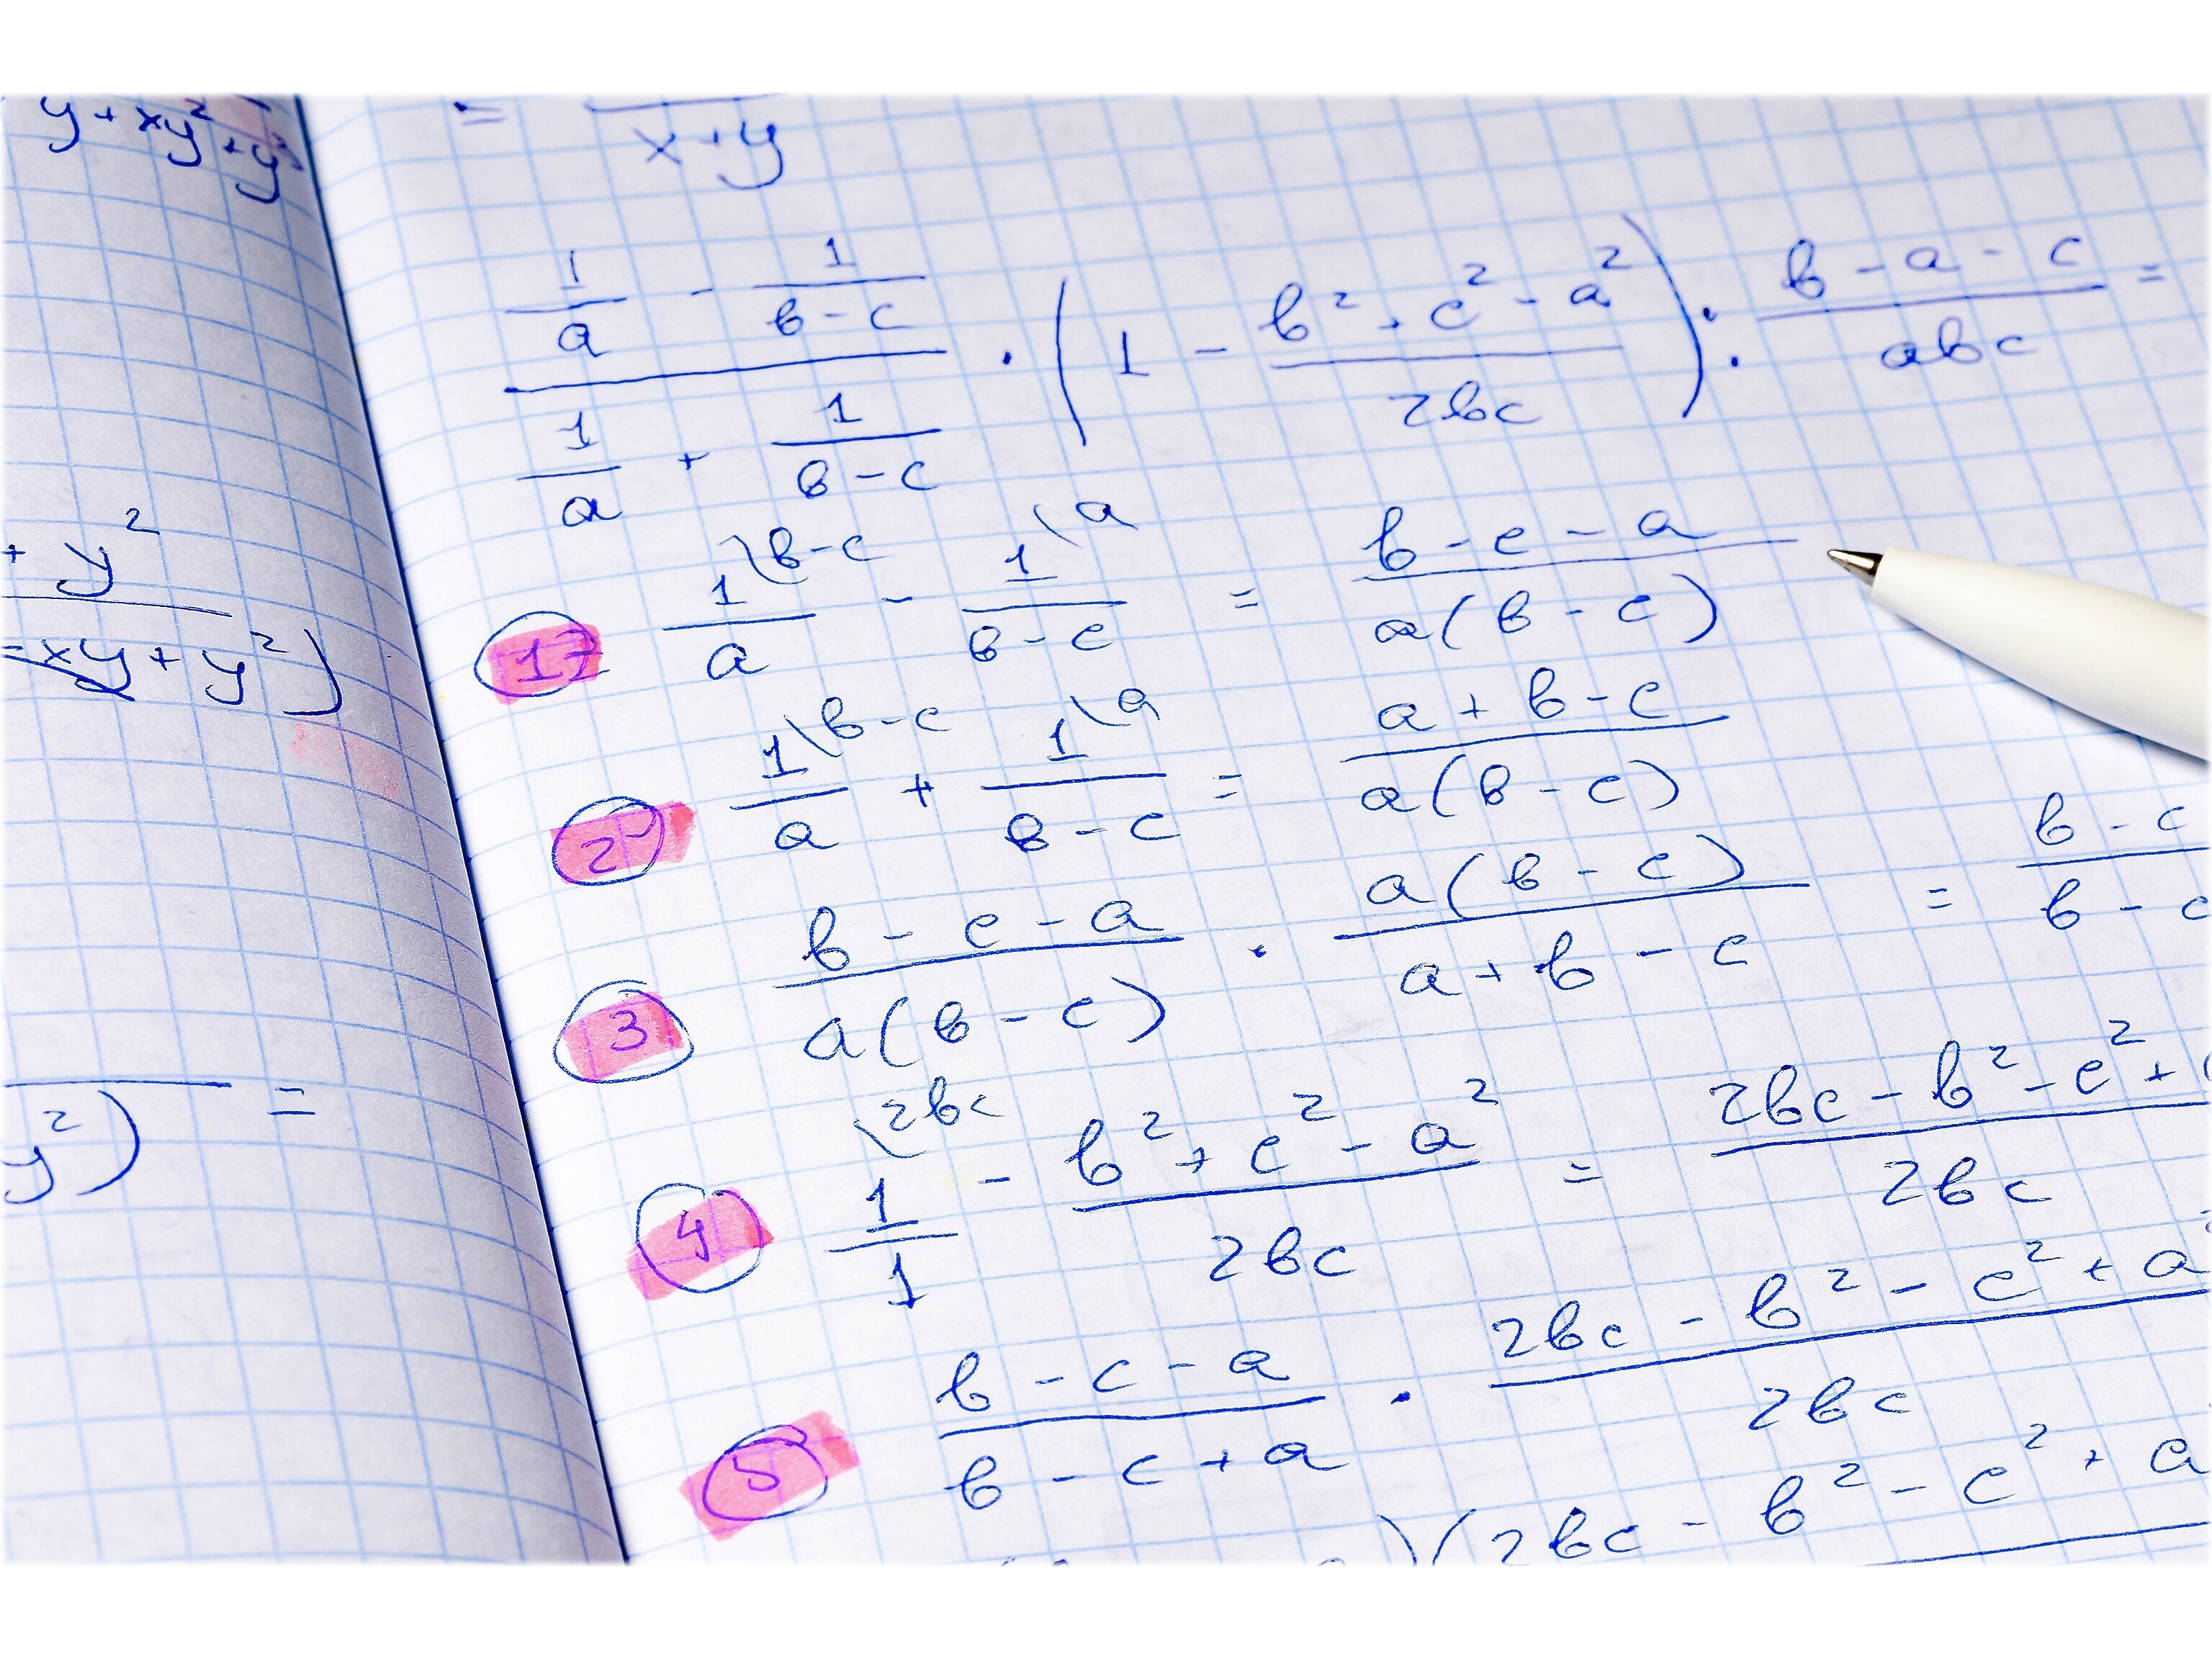 y + xy² + y³
+ y²
- xy + y²)
y²) =
= / (x + y)
(1/a - 1/(b - c)) / (1/a + 1/(b - c)) · (1 - (b² + c² - a²)/(2bc)) : (b - a - c)/(abc) =
1) 1\b-c/a - 1\a/(b - c) = (b - c - a)/(a(b - c))
2) 1\b-c/a + 1\a/(b - c) = (a + b - c)/(a(b - c))
3 (b - c - a)/(a(b - c)) · (a(b - c))/(a + b - c) = (b - c)/(b - c
4 1\2bc/1 - (b² + c² - a²)/(2bc) = (2bc - b² - c² +)/(2bc)
5 (b - c - a)/(b - c + a) · (2bc - b² - c² + a)/(2bc)
)(2bc - b² - c² + a